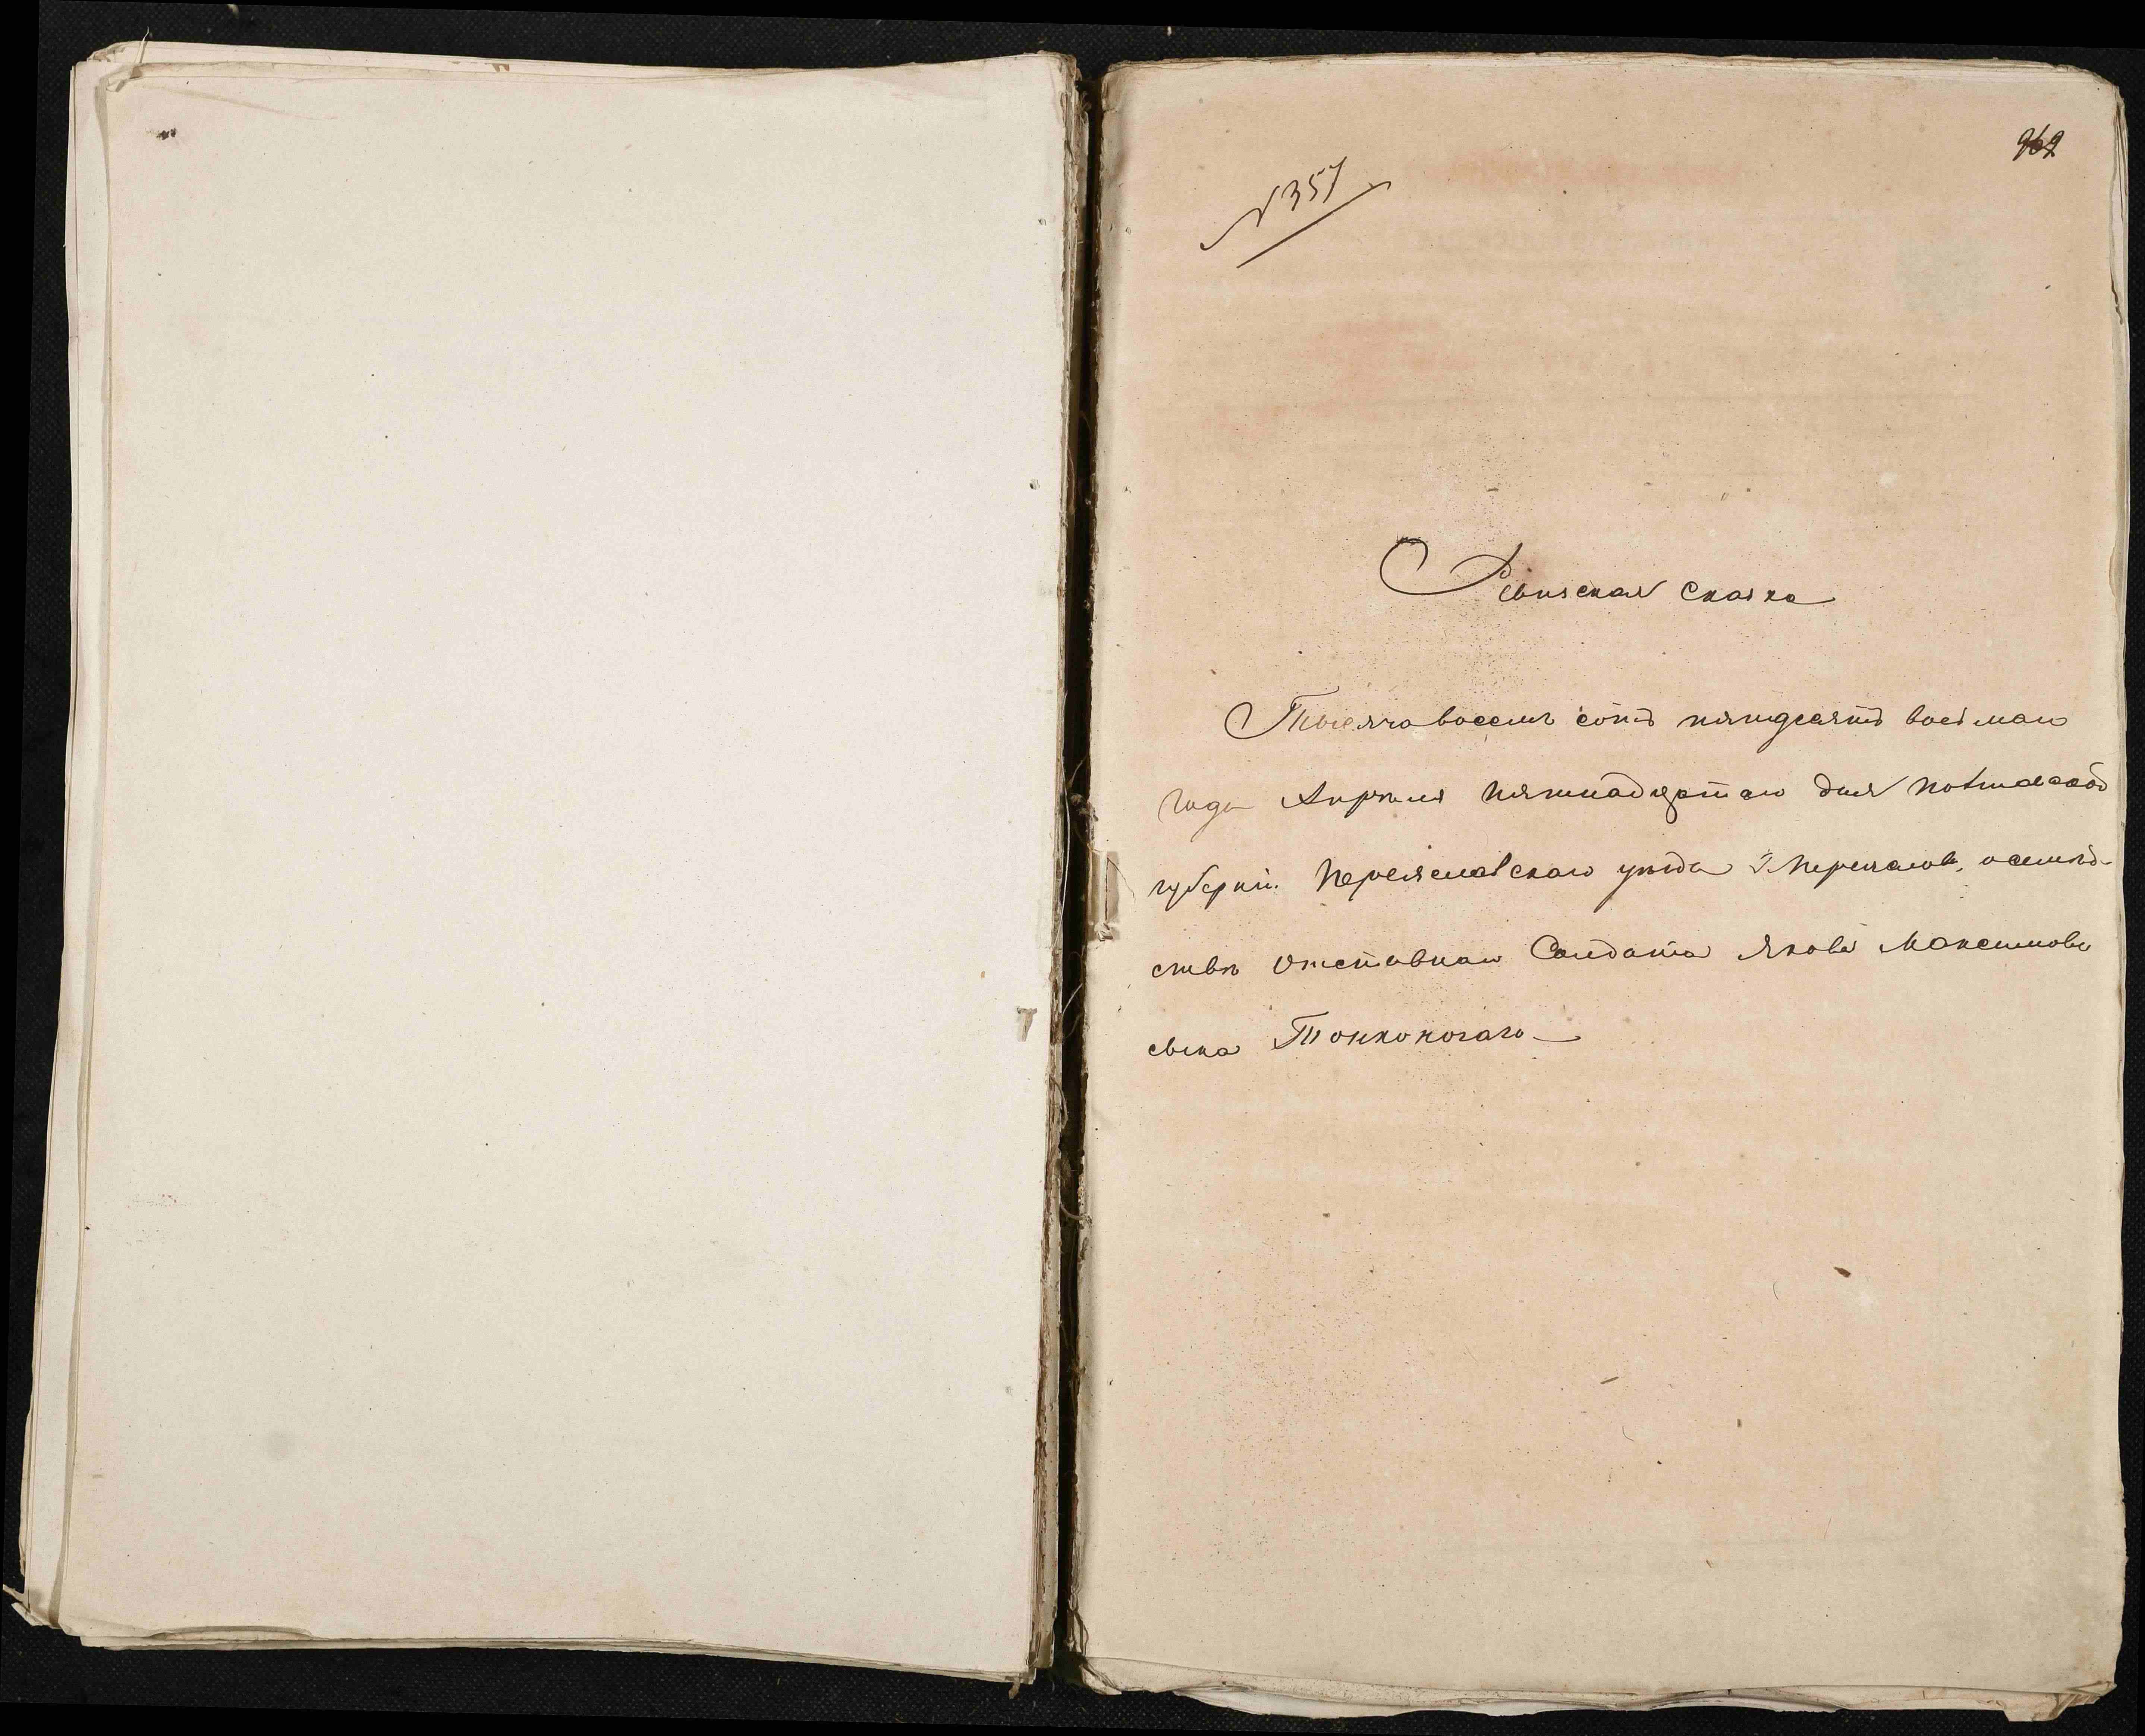 962
№ 357
Ревизская сказка
Тысяча восемь сотъ пятдесятъ восьмаго
года Апреля пятнадцатаго дня Полтавской
губерніи Переяславскаго уезда
отставнаго Солдата Якова Максимова
сына Тонконогаго